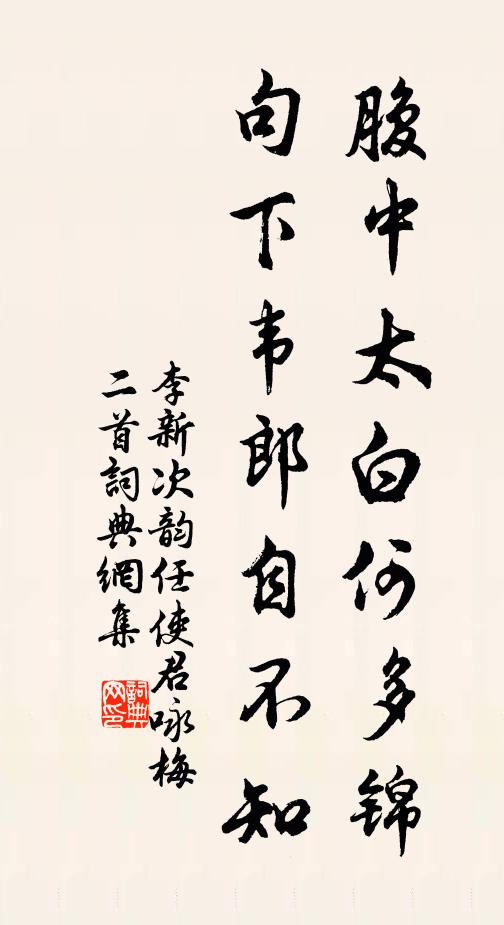 腹中太白何多锦
句下韦郎自不知
李新次韵任使君咏梅
二首詞典網集
詞典
网印